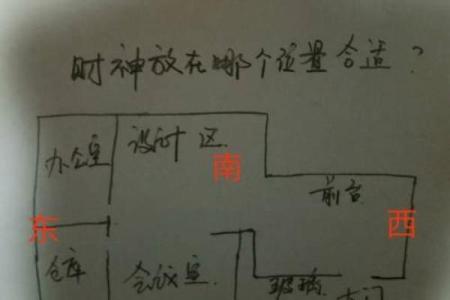 财神放在哪个位置合适？
办公室
设计区
南
前台
东
西
仓库
会议室
玻璃
大门